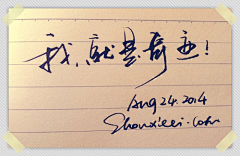 我,就是奇迹!
Aug 24.2014